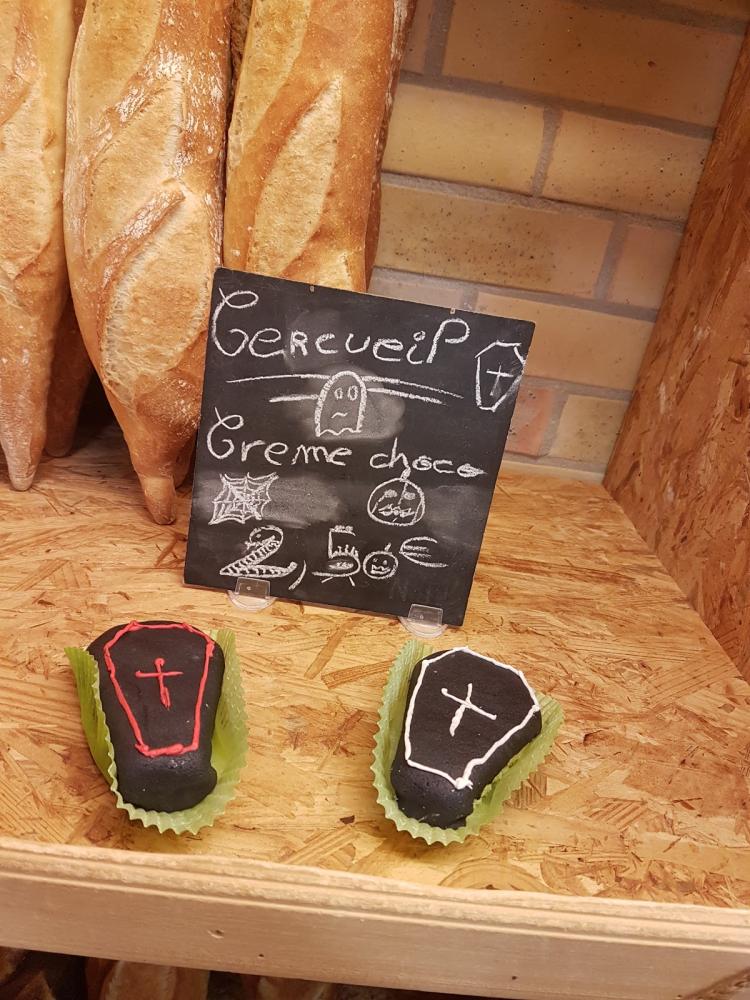 Cercueil
Creme choco
2,50€